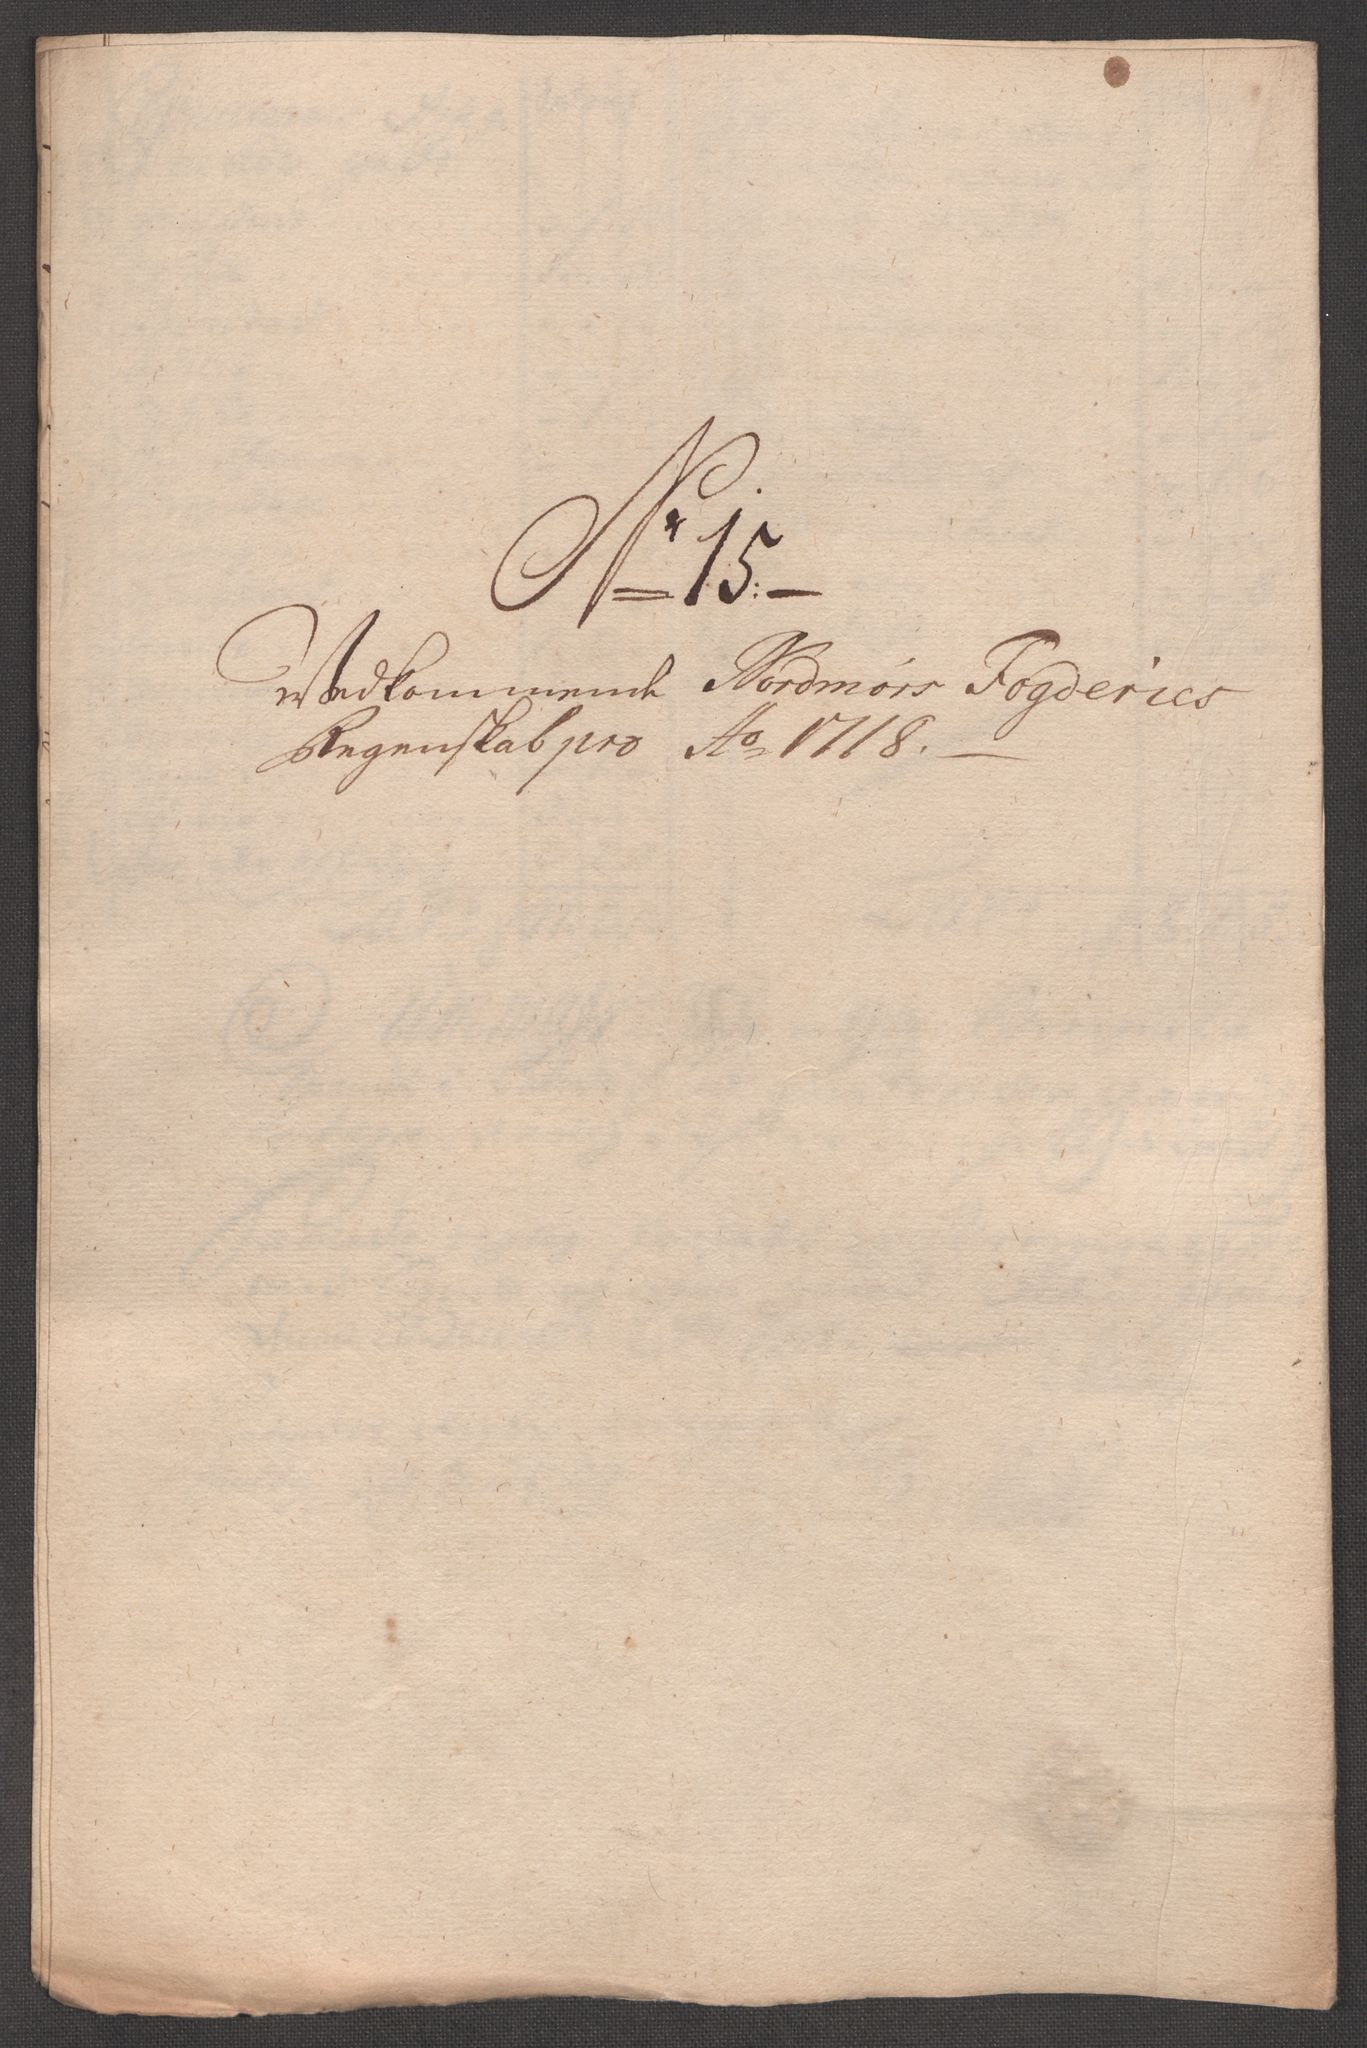 Nr 15.
Wedkommende Nordmørs Fogderies
Regenskab pro Ao 1718.